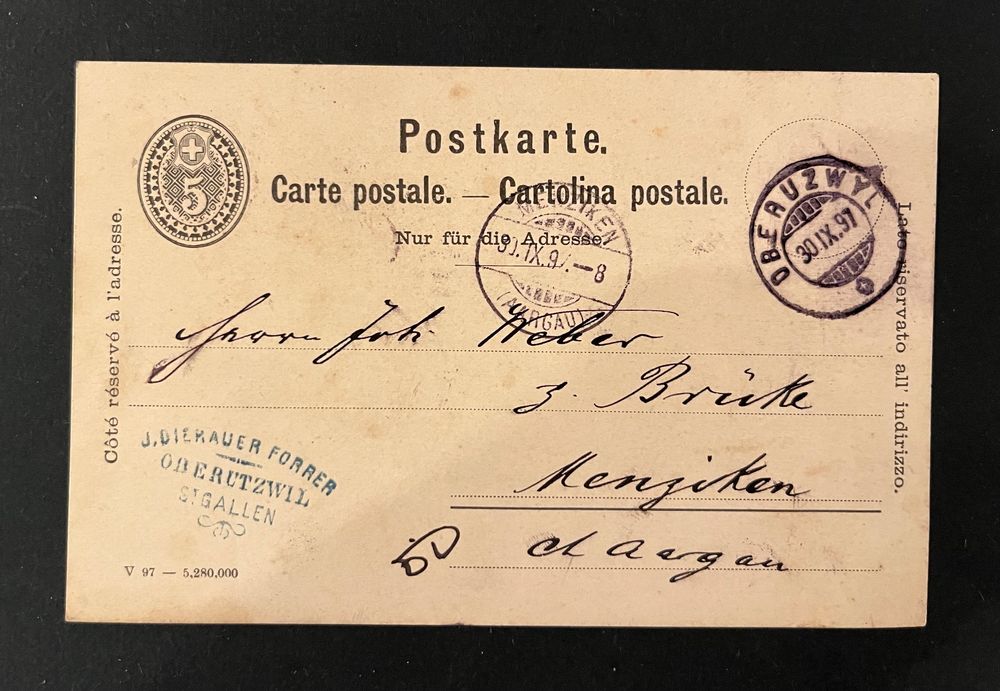 Postkarte.
Carte postale. — Cartolina postale.
Nur für die Adresse.
5
OBERUZWYL
30.IX.97
MENZIKEN
30.IX.97.–8
(AARGAU)
Côté réservé à l'adresse.
Lato riservato all' indirizzo.
Herrn Joh. Weber
z. Brücke
Menziken
Ct Aargau
J. DIERAUER FORRER
OBERUTZWIL
ST GALLEN
V 97 — 5,280,000